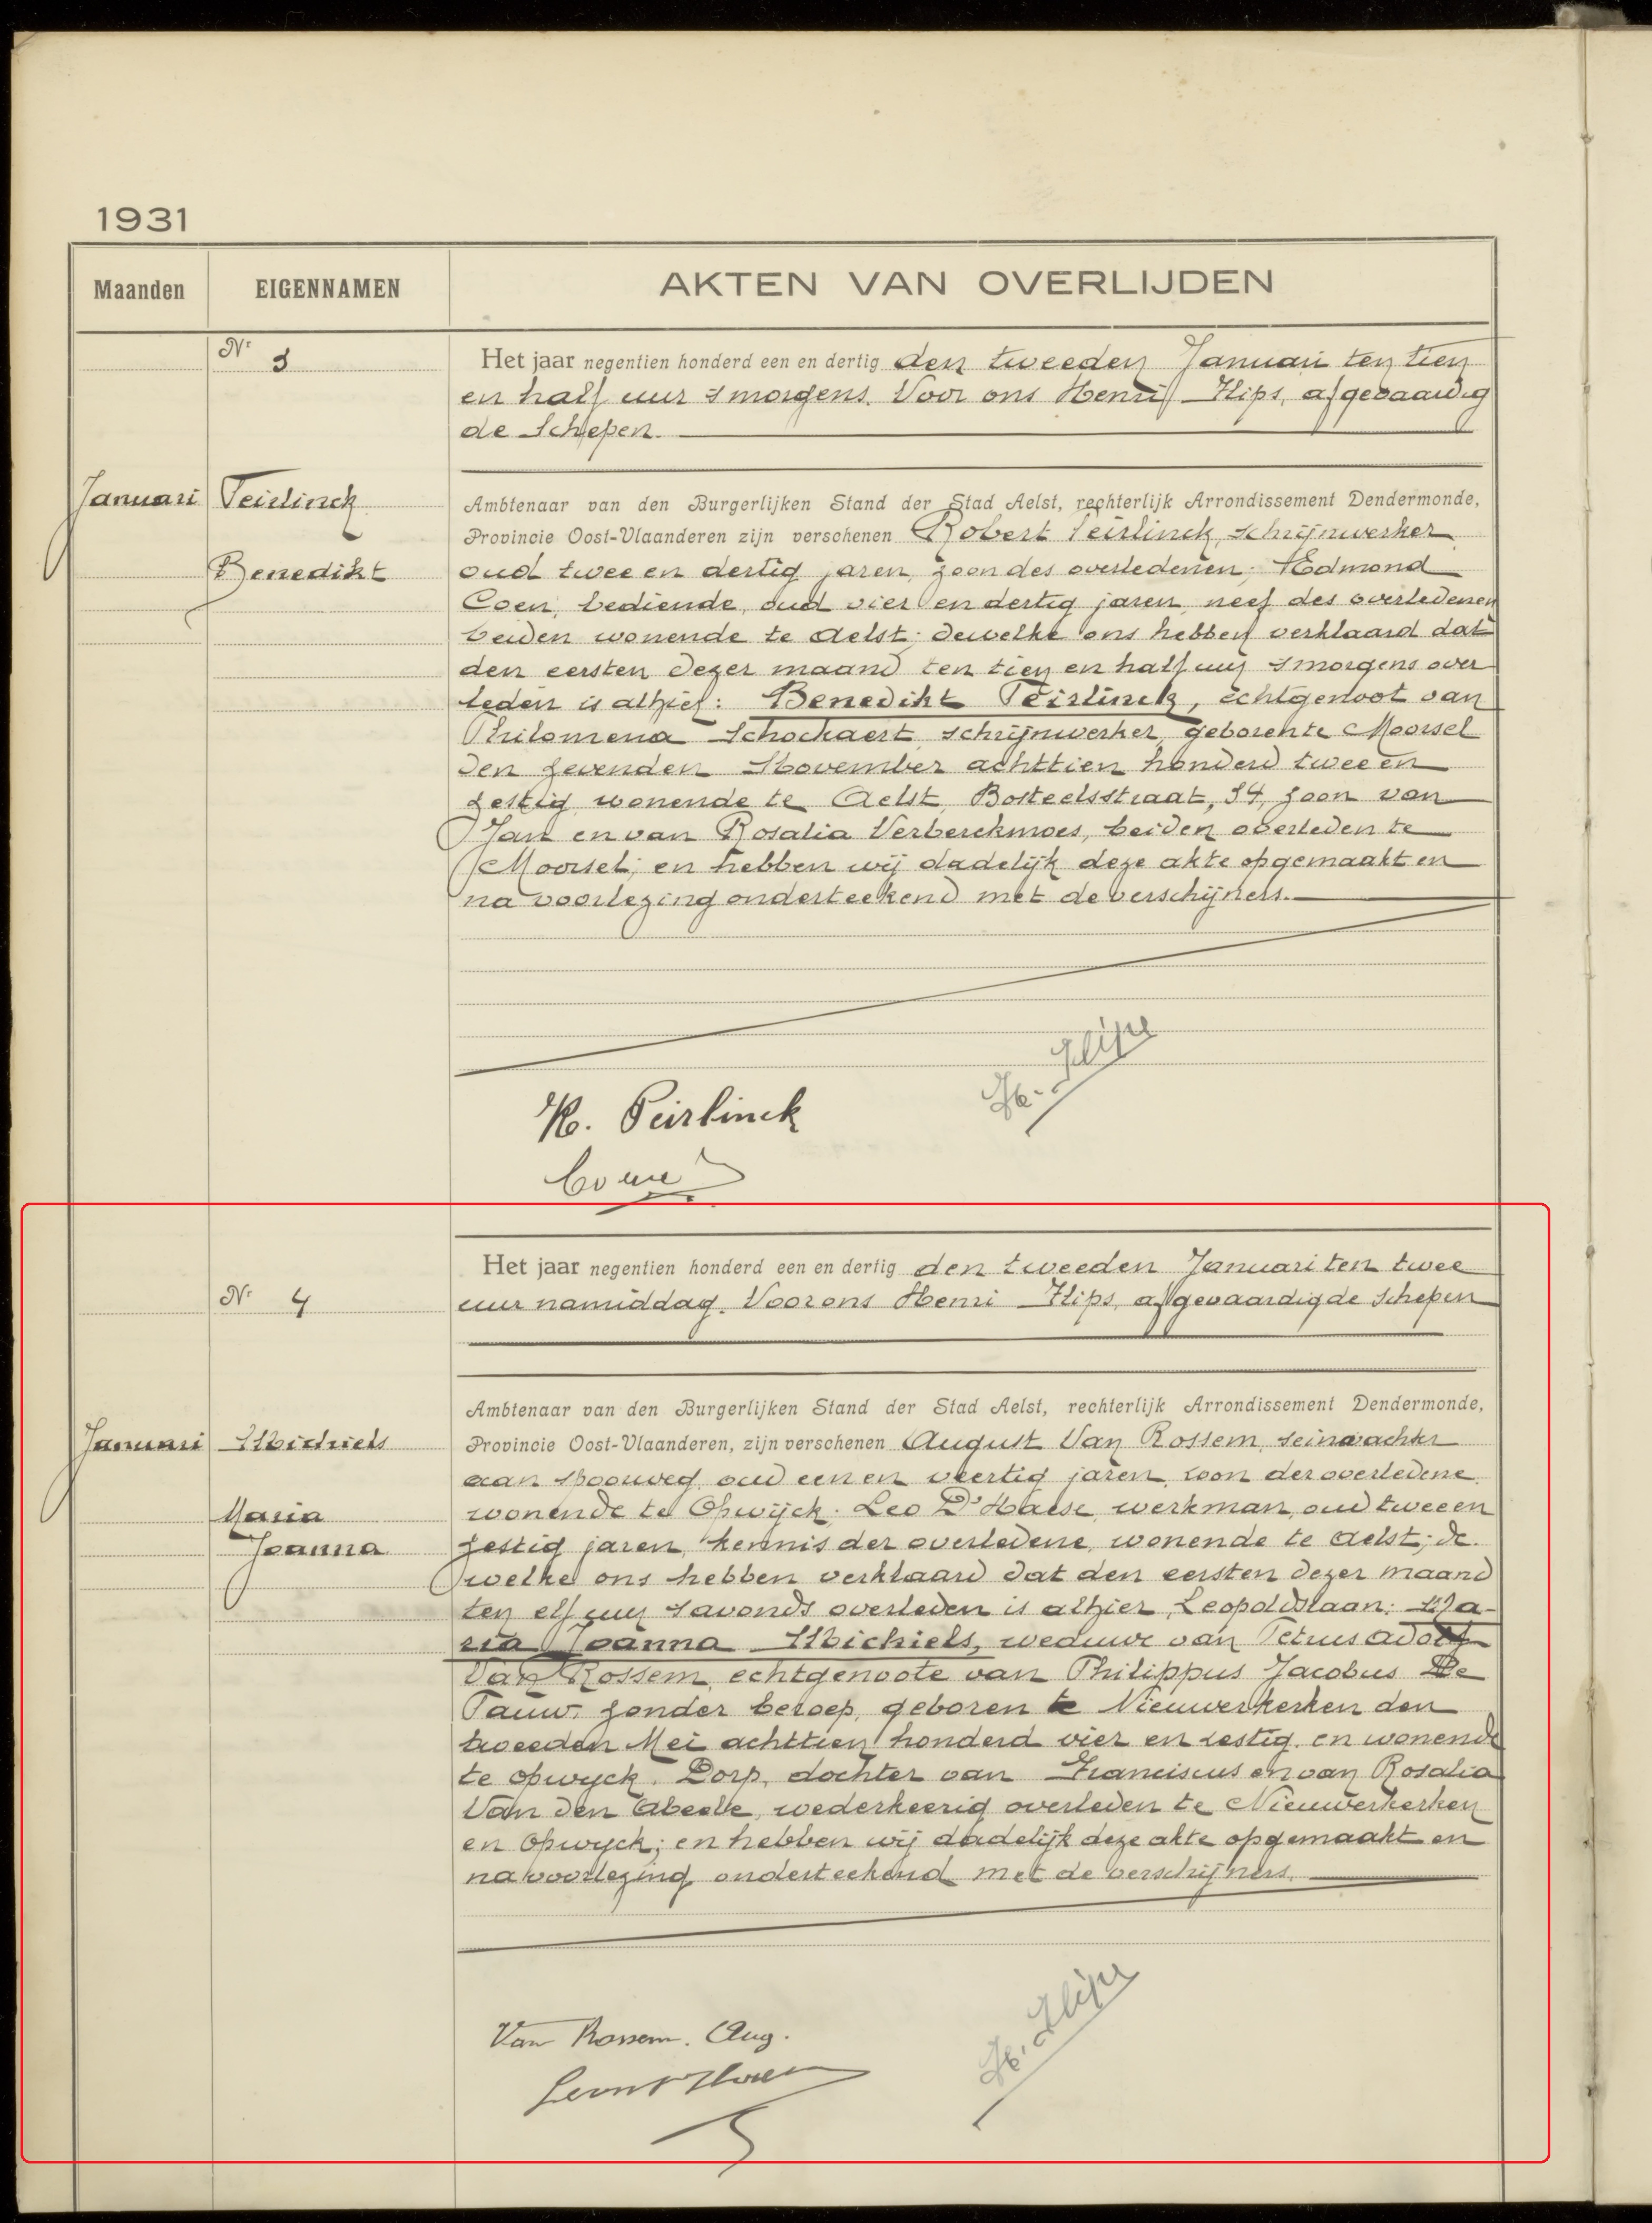 1931
Maanden
EIGENNAMEN
AKTEN VAN OVERLIJDEN
Nr 3
Het jaar negentien honderd een en dertig den tweeden Januari ten tien
en half uur s morgens. Voor ons Henri Flips, afgevaardig
de Schepen.
Januari
Teirlinck
Benedikt
Ambtenaar van den Burgerlijken Stand der Stad Aelst, rechterlijk Arrondissement Dendermonde,
Provincie Oost-Vlaanderen zijn verschenen Robert Teirlinck, schrijnwerker
oud twee en dertig jaren, zoon des overledenen; Edmond
Coen, bediende, oud vier en dertig jaren, neef des overledenen
beiden wonende te Aelst; dewelke ons hebben verklaard dat
den eersten dezer maand ten tien en half uur s morgens over
leden is alhier: Benedikt Teirlinck, echtgenoot van
Philomena Schockaert, schrijnwerker, geboren te Moorsel
den zevenden November achttien honderd twee en
zestig wonende te Aelst, Bosteelsstraat, 54, zoon van
Jan en van Rosalia Verberckmoes, beiden overleden te
Moorsel; en hebben wij dadelijk deze akte opgemaakt en
na voorlezing onderteekend met de verschijners.
H. Flips
R. Teirlinck
Coen
Nr 4
Het jaar negentien honderd een en dertig den tweeden Januari ten twee
uur namiddag. Voor ons Henri Flips, afgevaardigde Schepen
Januari
Michiels
Maria
Joanna
Ambtenaar van den Burgerlijken Stand der Stad Aelst, rechterlijk Arrondissement Dendermonde,
Provincie Oost-Vlaanderen, zijn verschenen August Van Rossem, seinwachter
aan spoorweg, oud een en veertig jaren, zoon der overledene,
wonende te Opwijck; Leo D'Haese, werkman, oud twee en
zestig jaren, kennis der overledene, wonende te Aelst; de
welke ons hebben verklaard dat den eersten dezer maand
ten elf uur s avonds overleden is alhier, Leopoldslaan: Ma-
ria Joanna Michiels, weduwe van Petrus Adolf
Van Rossem, echtgenoote van Philippus Jacobus De
Pauw, zonder beroep, geboren te Nieuwerkerken den
tweeden Mei achttien honderd vier en zestig, en wonende
te Opwyck, Dorp, dochter van Franciscus en van Rosalia
Van den Abeele, wederkeerig overleden te Nieuwerkerken
en Opwyck; en hebben wij dadelijk deze akte opgemaakt en
na voorlezing onderteekend met de verschijners.
H. Flips
Van Rossem. Aug.